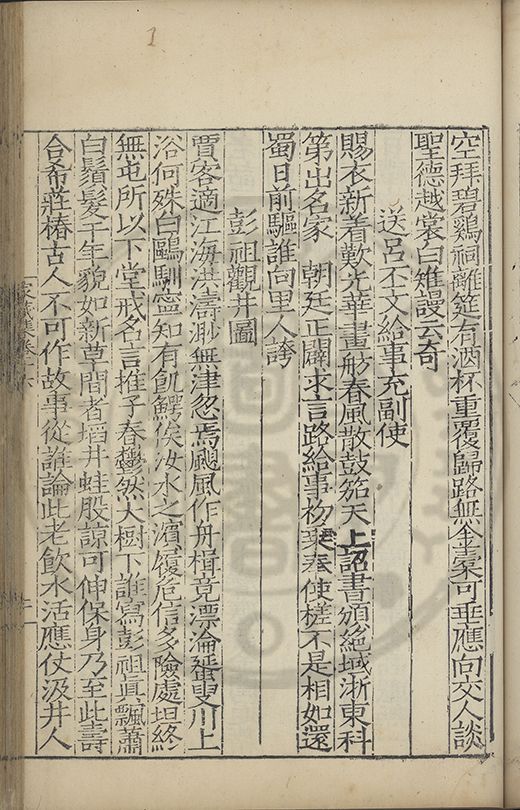 空拜碧鷄祠離筵有酒杯重覆歸路無金橐可垂應向交人談
聖德越裳白雉謾云奇
送呂丕文給事充副使
賜衣新着歎光華畫舫春風散鼓笳天上詔書頒絕域浙東科
第出名家 朝廷正闢求言路給事初乘奉使槎不是相如還
蜀日前驅誰向里人誇
彭祖觀井圖
賈客適江海洪濤渺無津忽焉颶風作舟楫竟漂淪蜑叟川上
浴何殊白鷗馴寧知有飢鰐俟汝水之濱履危信多險處坦終
無屯所以下堂戒名言推子春鬱然大樹下誰寫彭祖真飄蕭
白鬚髮千年貌如新草間者埳井蛙股諒可伸保身乃至此壽
合希莊椿古人不可作故事從誰論此老飲水活應仗汲井人
家藏集卷十六